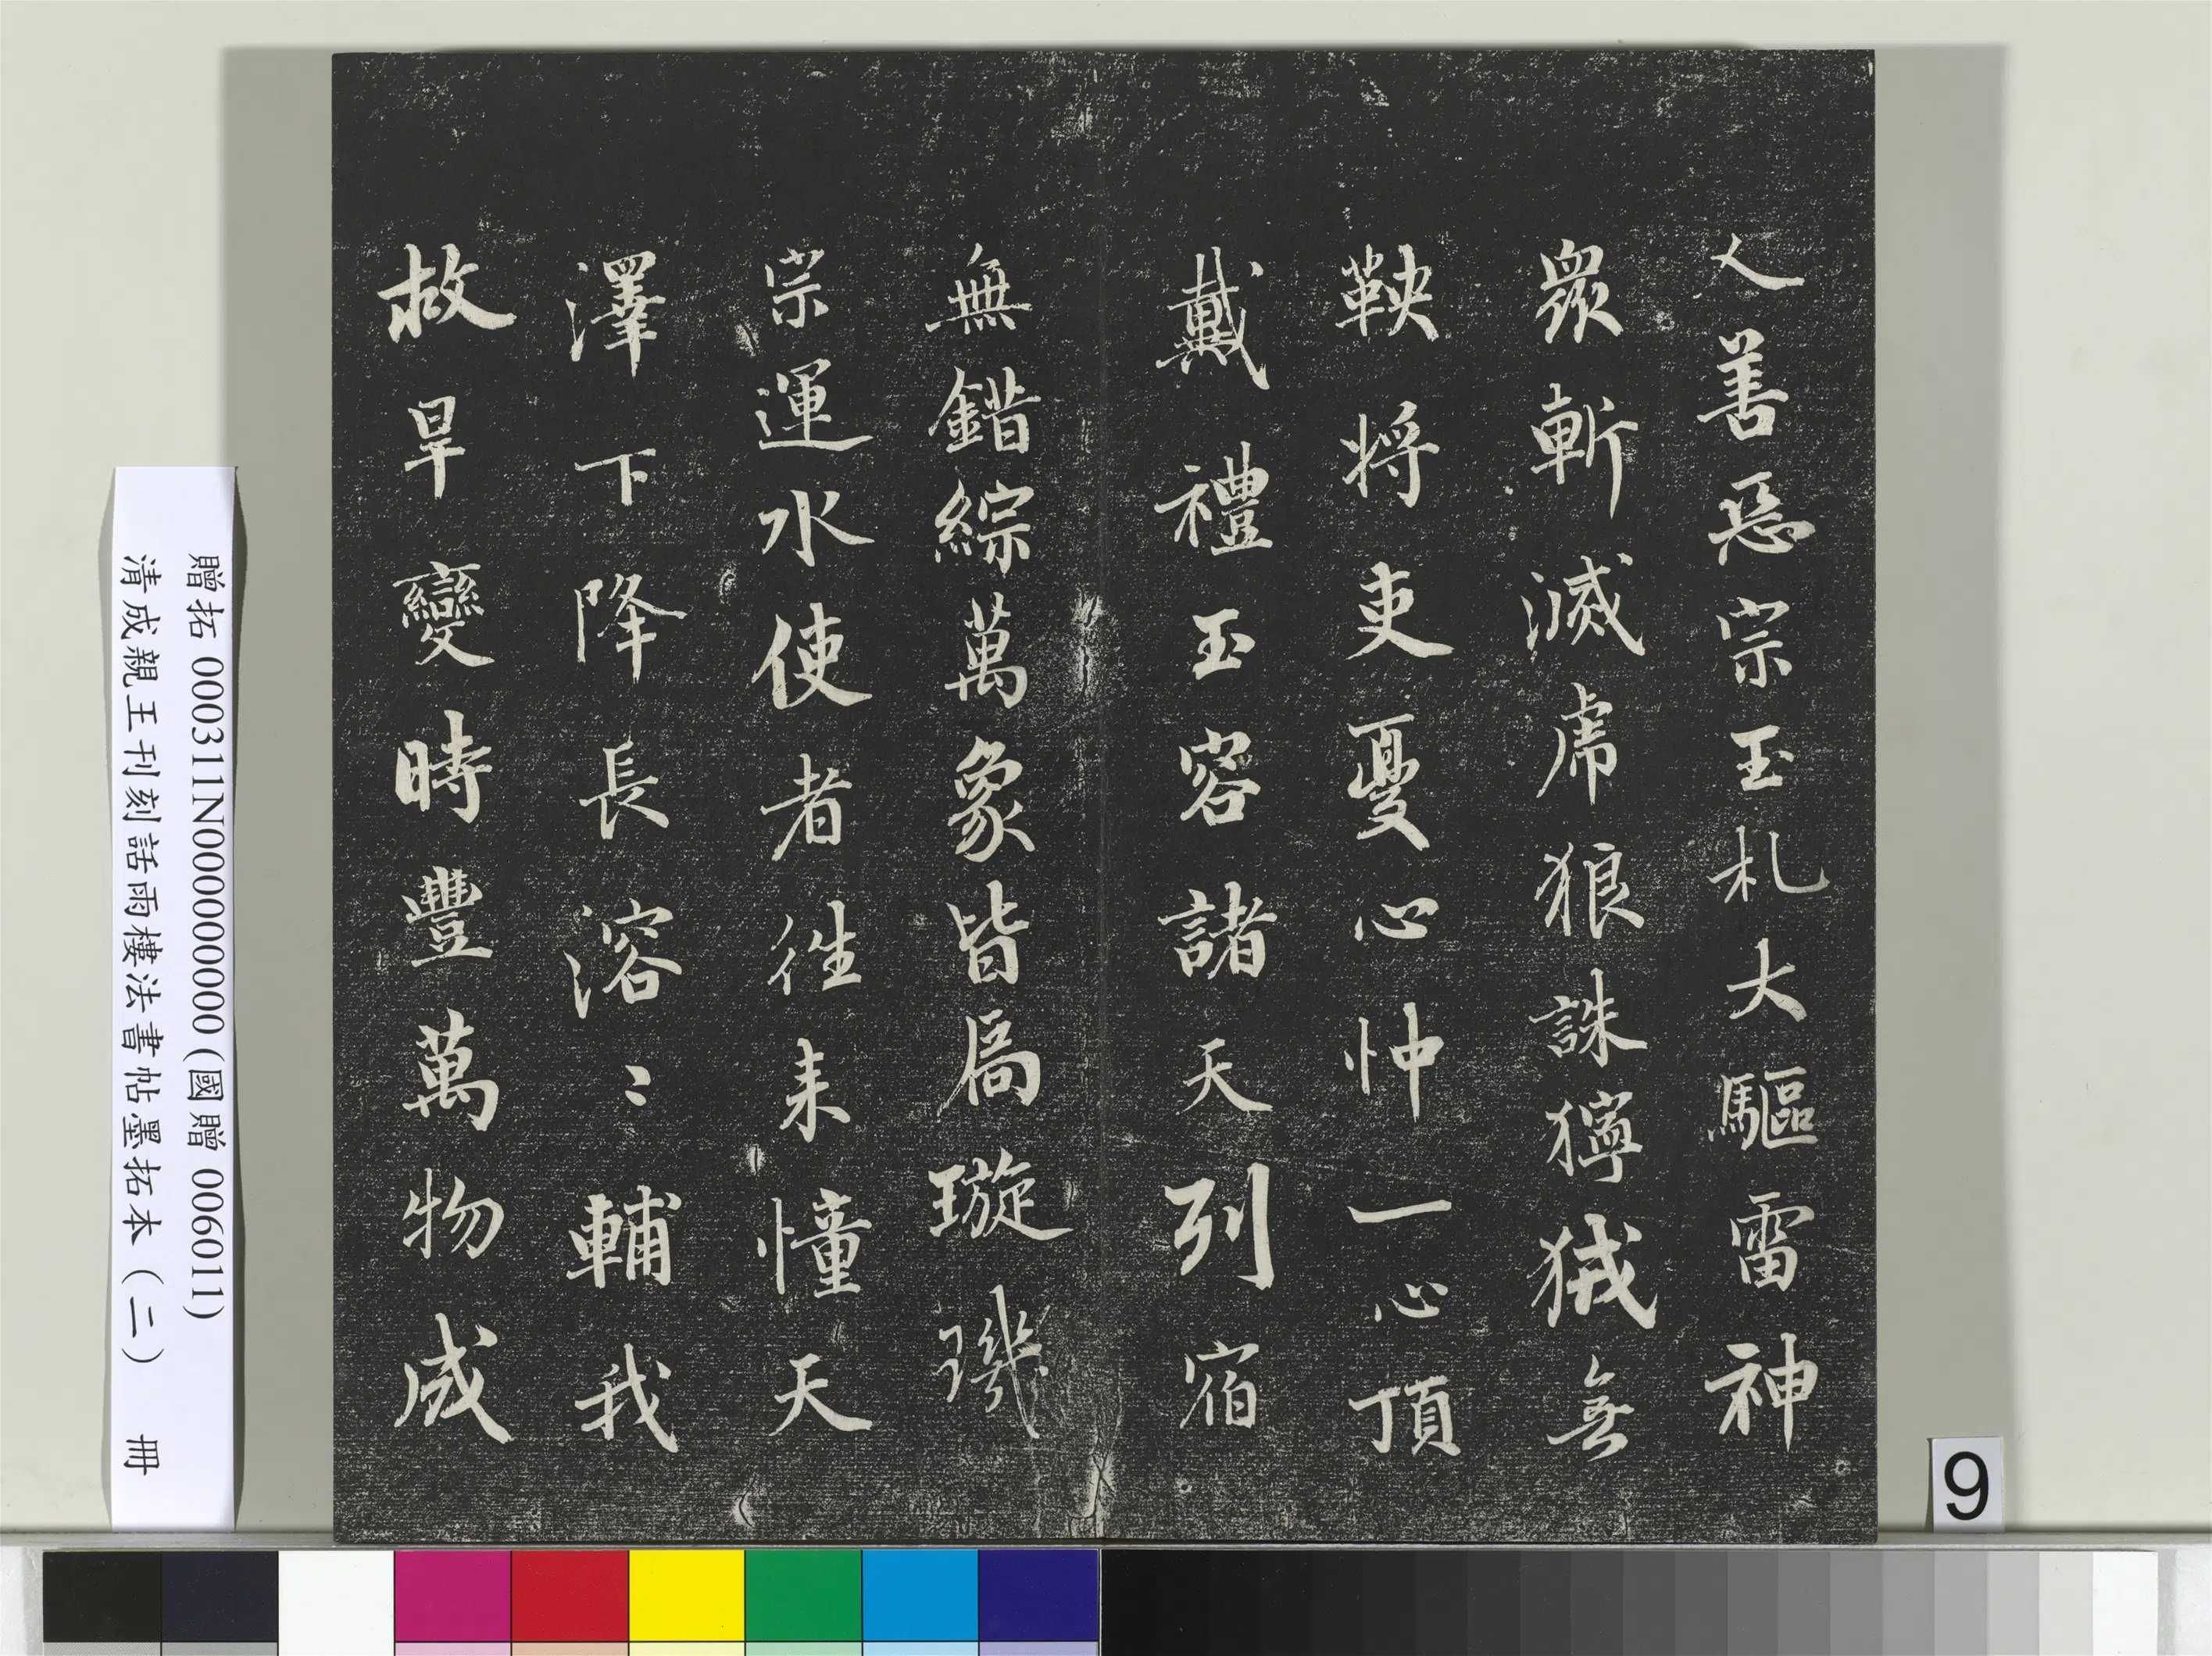 人善惡宗玉札大驅雷神
眾斬滅虎狼誅獰狨無
鞅將吏憂心忡一心頂
戴禮玉容諸天列宿
無錯綜萬象皆局璇璣
宗運水使者往来憧天
澤下降長溶〻輔我
故旱變時豐萬物成
贈拓 000311N000000000 (國贈 006011)
清成親王刊刻話雨樓法書帖墨拓本（二） 冊
9